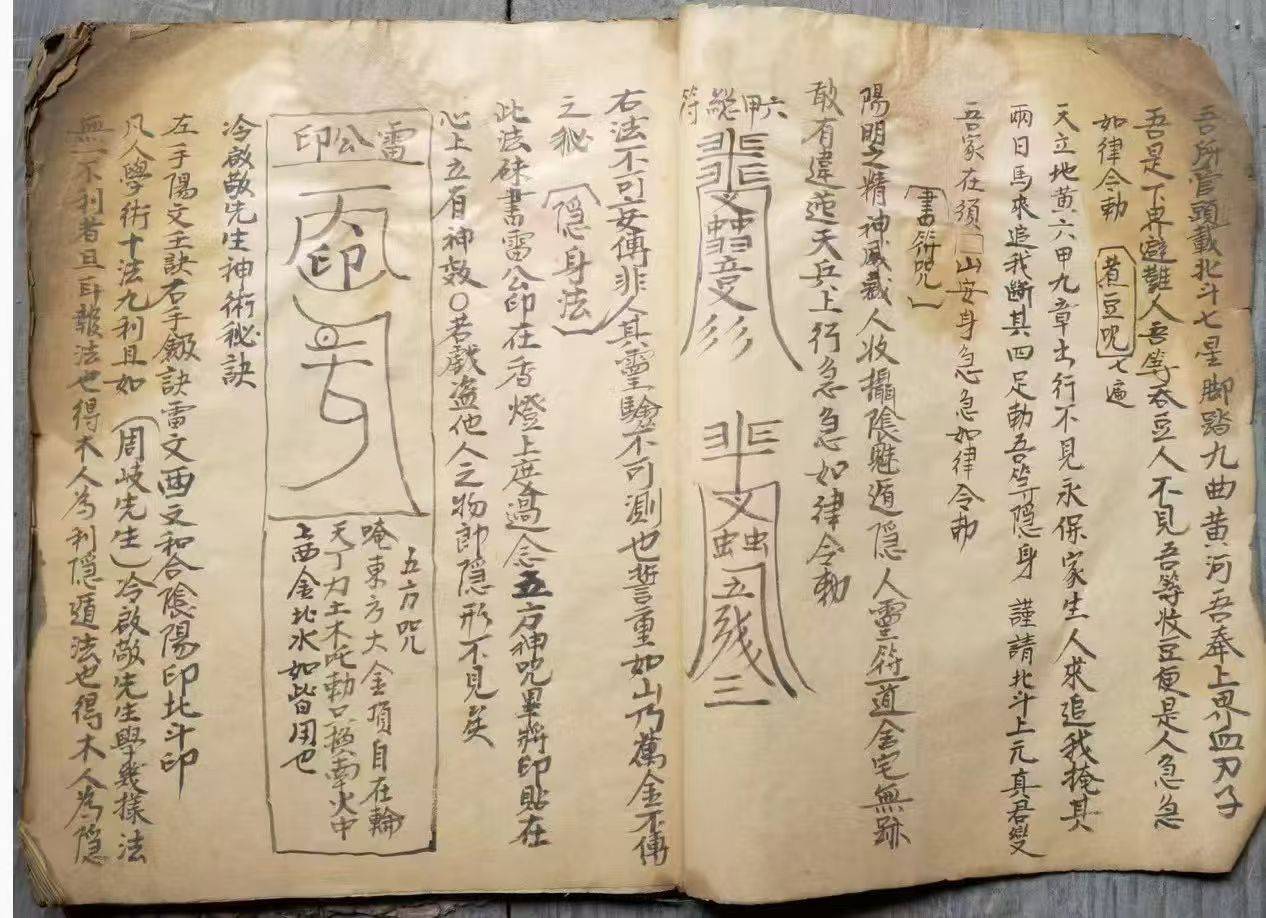 吾所管頭載北斗七星脚踏九曲黄河吾奉上界血刃子
吾是下界避難人吾等吞豆人不見吾等收豆便是人急急
如律令勅
煮豆咒
七遍
天立地黄六甲九章出行不見永保家生人求追我掩其
兩目馬來追我斷其四足勅吾等隱身 謹請北斗上元真君變
吾家在須□山安身急急如律令勅
書符咒
陽明之精神威裁人收攝陰魅遁隱人靈符道全宅無跡
敢有違逆天兵上行急急如律令勅
六甲總符
右法不可妄傳非人其靈驗不可測也誓重如山乃萬金不傳
之秘
隱身法
此法硃書雷公印在香燈上度過念五方神咒畢將印貼在
心上立有神效〇若戲盗他人之物即隱形不見矣
雷公印
五方咒
唵東方大金頂自在輪
天丁力士木吒勅口攝南火中
上西金北水如皆用也
冷啟敬先生神術秘訣
左手陽文王訣右手劔訣雷文西文和合陰陽印北斗印
凡人學術十法九利且如
周岐先生
冷啟敬先生學幾樣法
無一不利者且耳報法也得木人為利隱遁法也得木人為隱